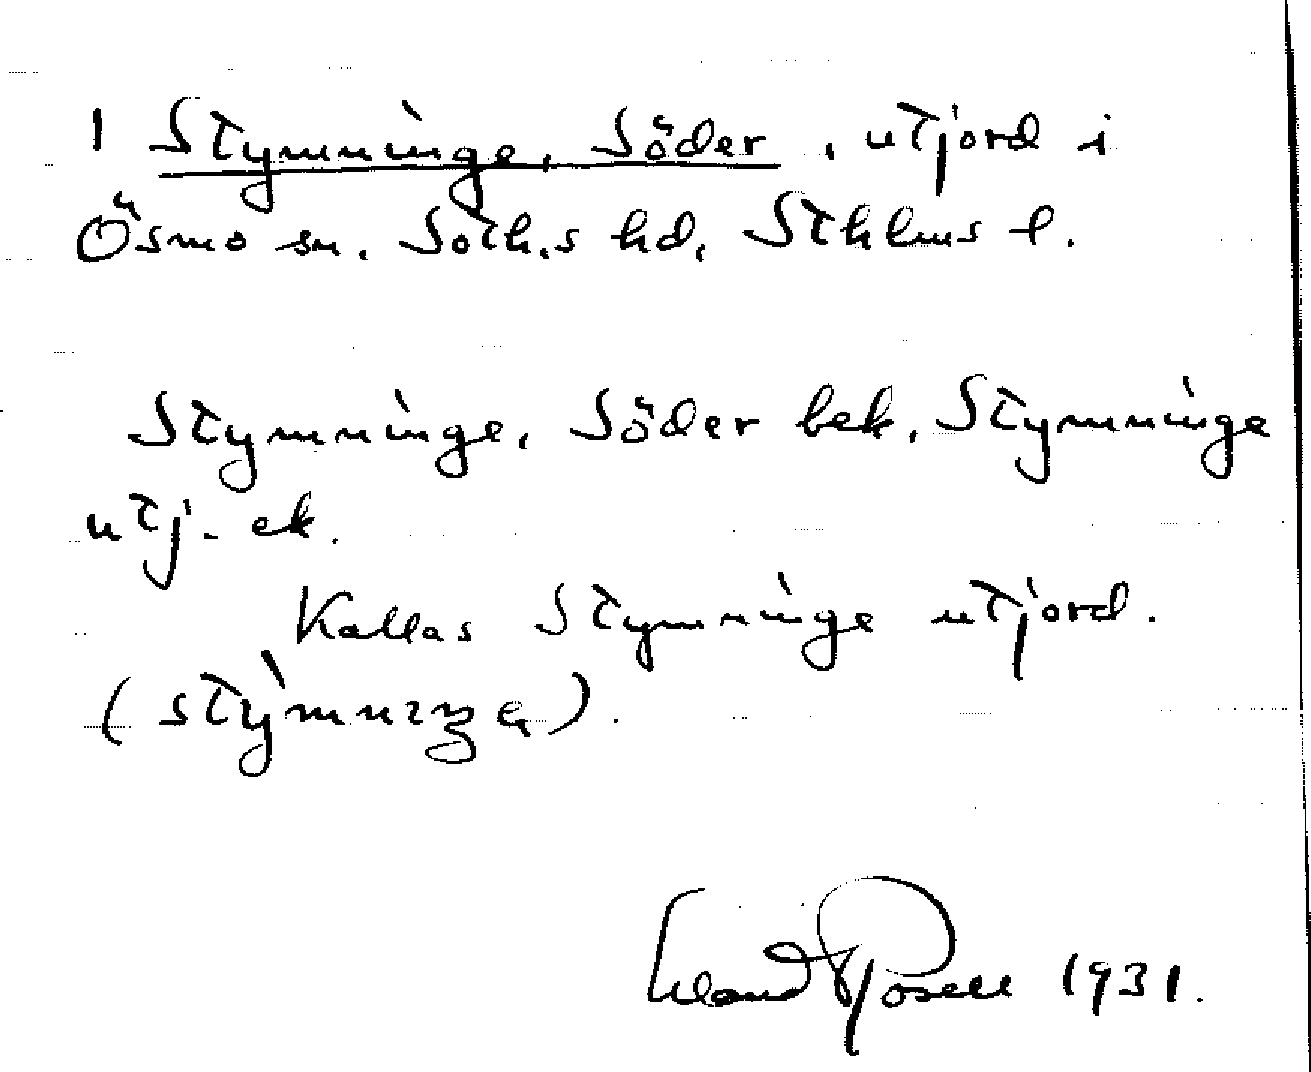 1 Stymninge, Söder, utjord i
Ösmo sn. Soth.s hd, Sthlms l.
Stymninge, Söder bek. Stymninge
utj. ek.
Kallas Stymninge utjord.
Rosell 1931.